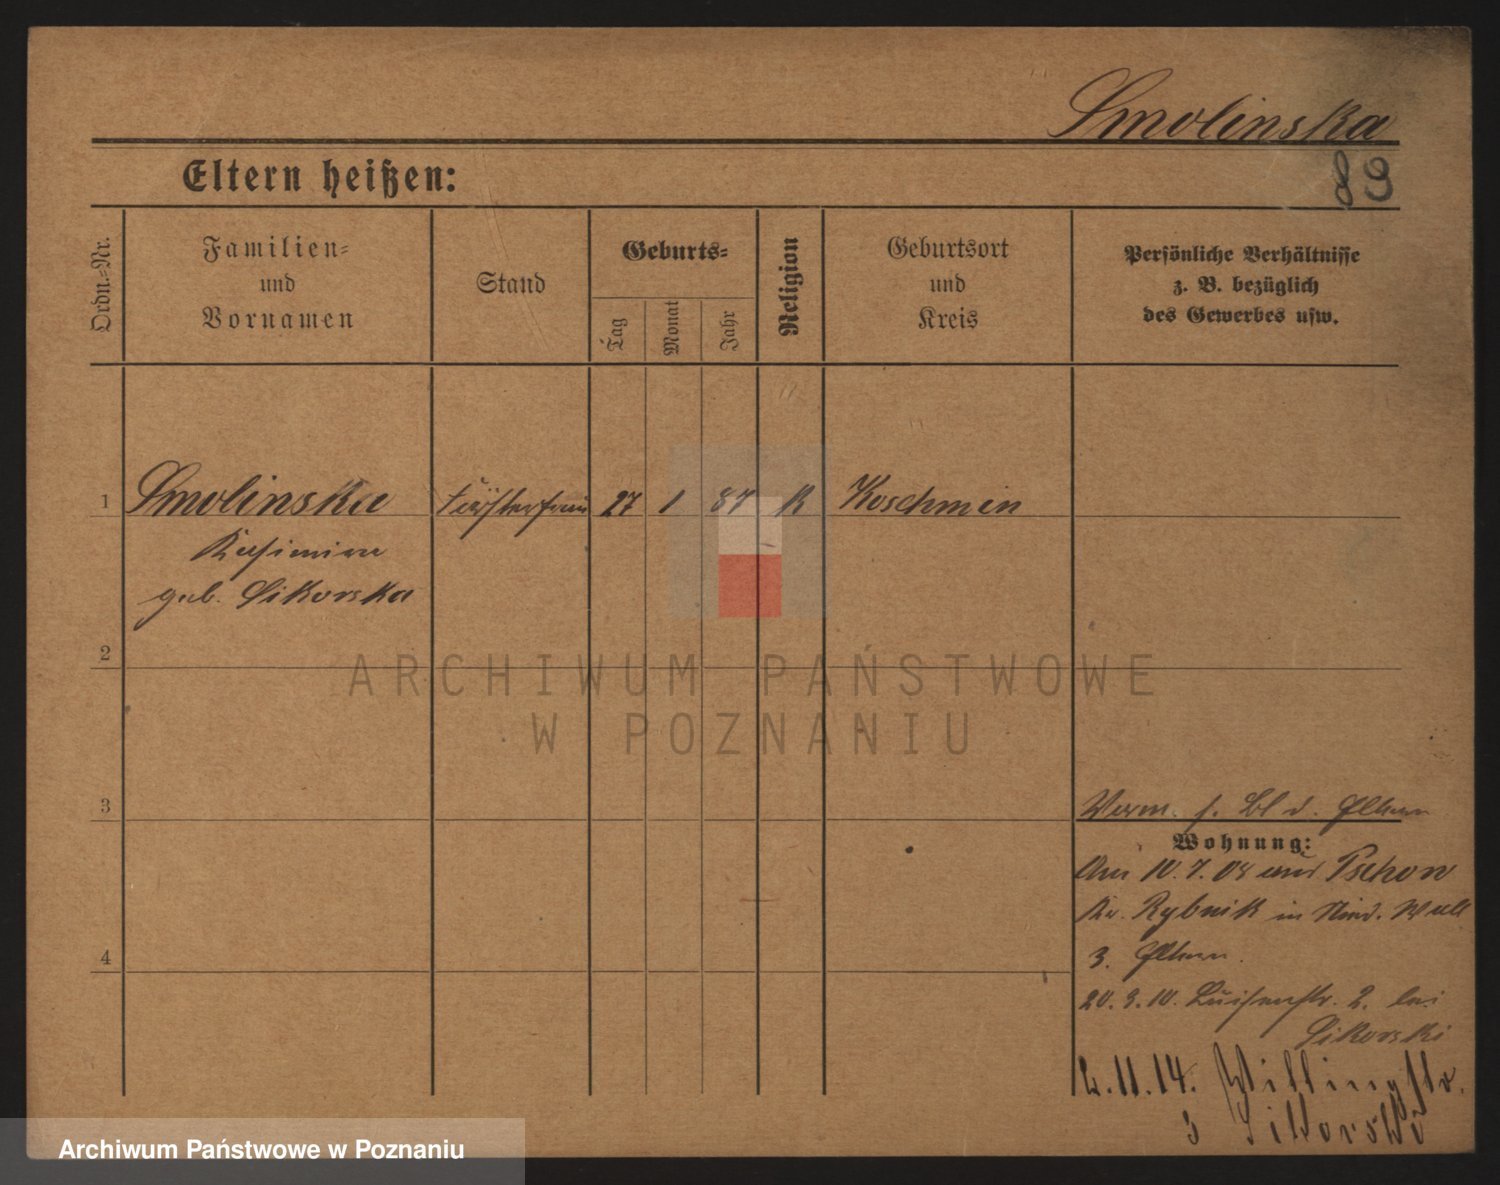 Smolinska
89
Eltern heißen:
Ordn.=Nr.
Familien=
und
Vornamen
Stand
Geburts=
Tag
Monat
Jahr
Religion
Geburtsort
und
Kreis
Persönliche Verhältnisse
z. B. bezüglich
des Gewerbes usw.
1 Smolinska Försterfrau 27 1 87 K Koschmin
Kasimira
geb. Sikorska
2
3
4
Verm. f. Bl d. Eltern
Wohnung:
Am 10.7.08 aus Pschow
Kr. Rybnik in Wall
3. Eltern.
20.9.10. Luisenstr. 2. bei
Sikorski
2.11.14.
3 Sikorski
ARCHIWUM PAŃSTWOWE
W POZNANIU
Archiwum Państwowe w Poznaniu